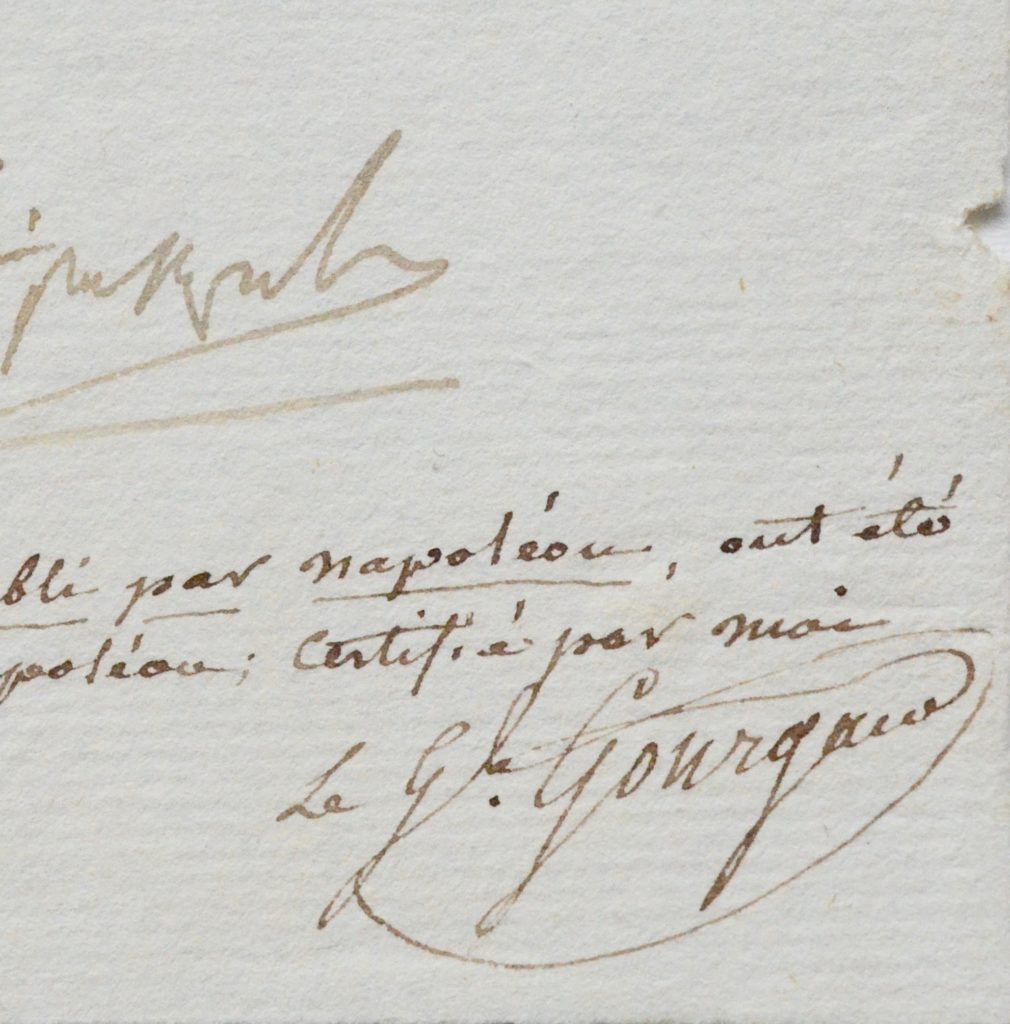 bli par napoléon, ont été
poléon; Certifié par moi
Le Gal. Gourgaud